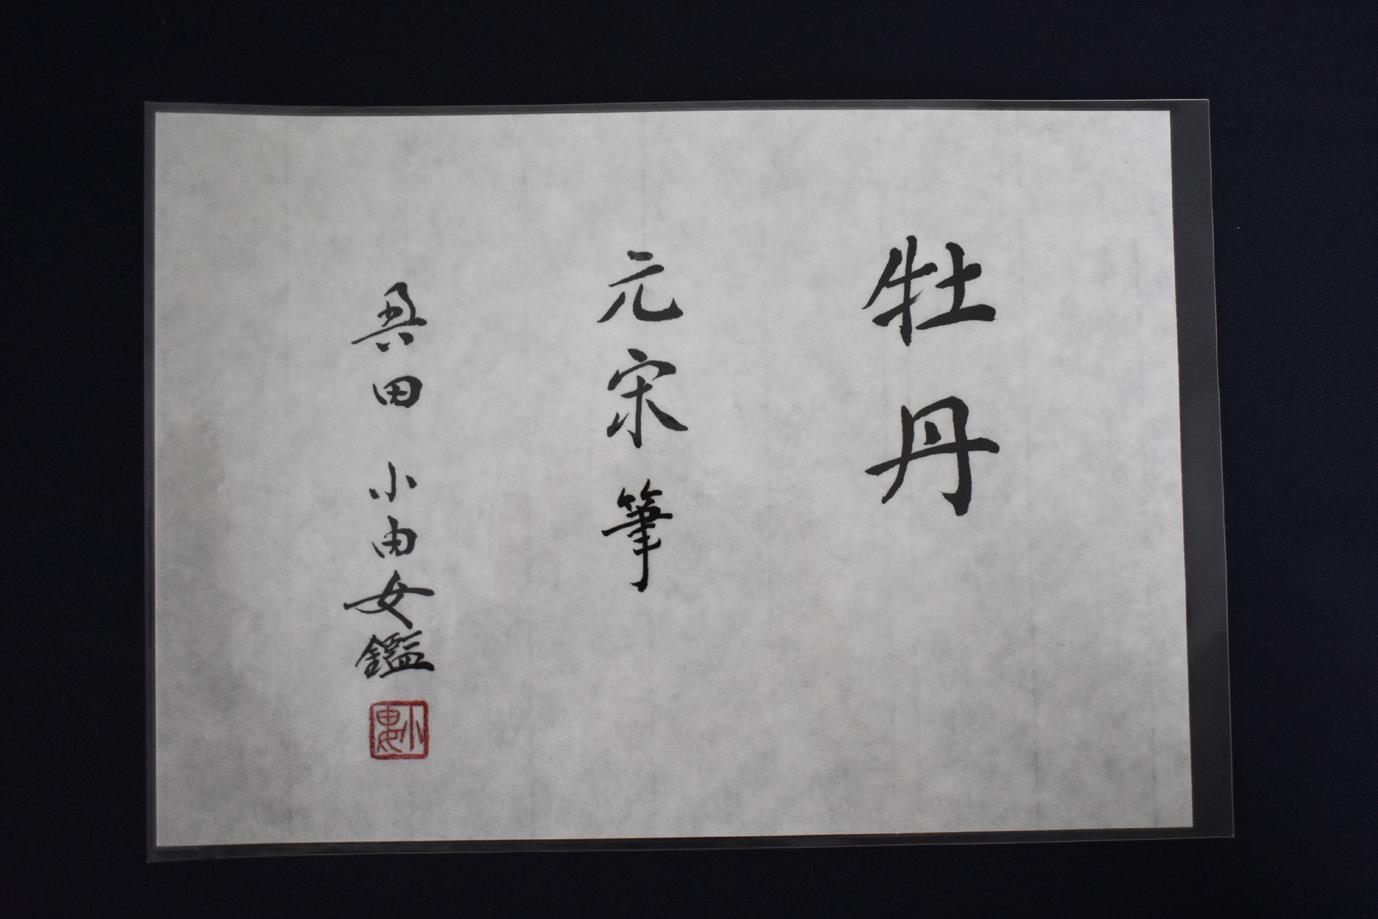 牡丹
元宋筆
奥田 小由女鑑
小由女